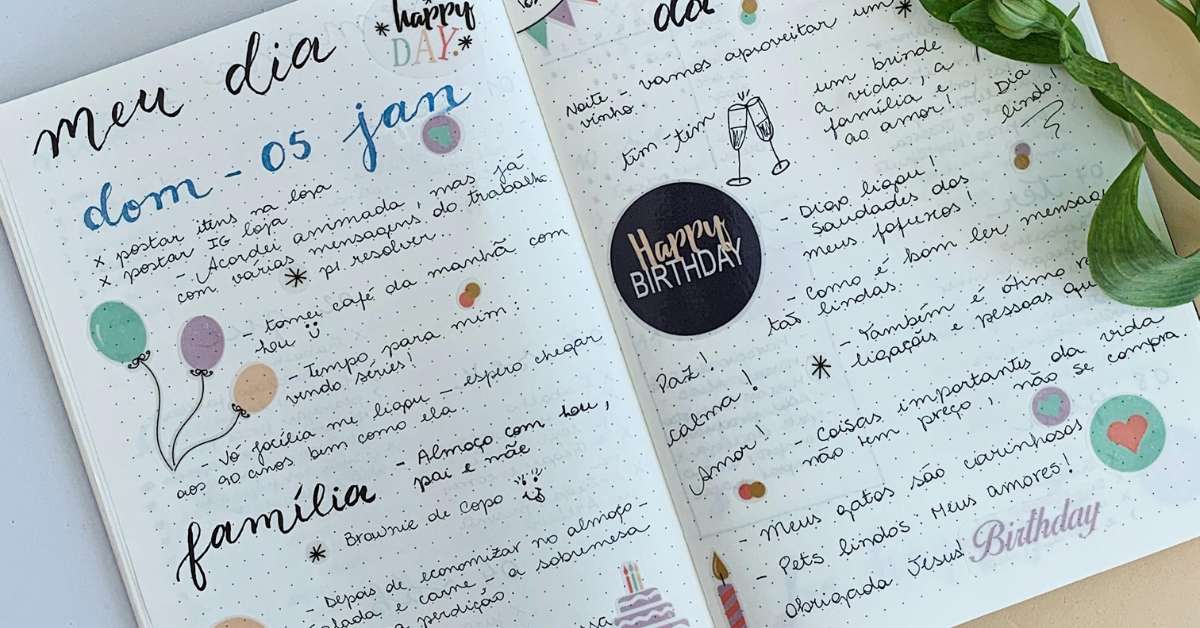 meu dia
happy
DAY.
dom - 05 jan
x postar itens na loja
x postar IG loja
- Acordei animada, mas já
com várias mensagens do trabalho
p/ resolver..
- tomei café da manhã com
heu
- Tempo para mim:
vendo séries!
- Vó Jacília me ligou - espero chegar
aos 90 anos bem como ela.
família
- Almoço com heu,
pai e mãe
Brownie de copo
- Depois de economizar no almoço -
salada e carne - a sobremesa
a perdição
da
Noite - vamos aproveitar um
vinho.
tim-tim
um brinde
a vida, a
família e
ao amor!
Dia
lindo!
- Digo ligou!
Saudades dos
meus fofuxos!
Happy
BIRTHDAY
- Como é bom ler mensagens
tão lindas.
- Também é ótimo
ligações e pessoas que
Paz!
calma!
Amor!
- Coisas importantes da vida
não tem preço, não se compra
- Meus gatos são carinhosos
- Pets lindos! Meus amores!
Obrigada Jesus!
Birthday